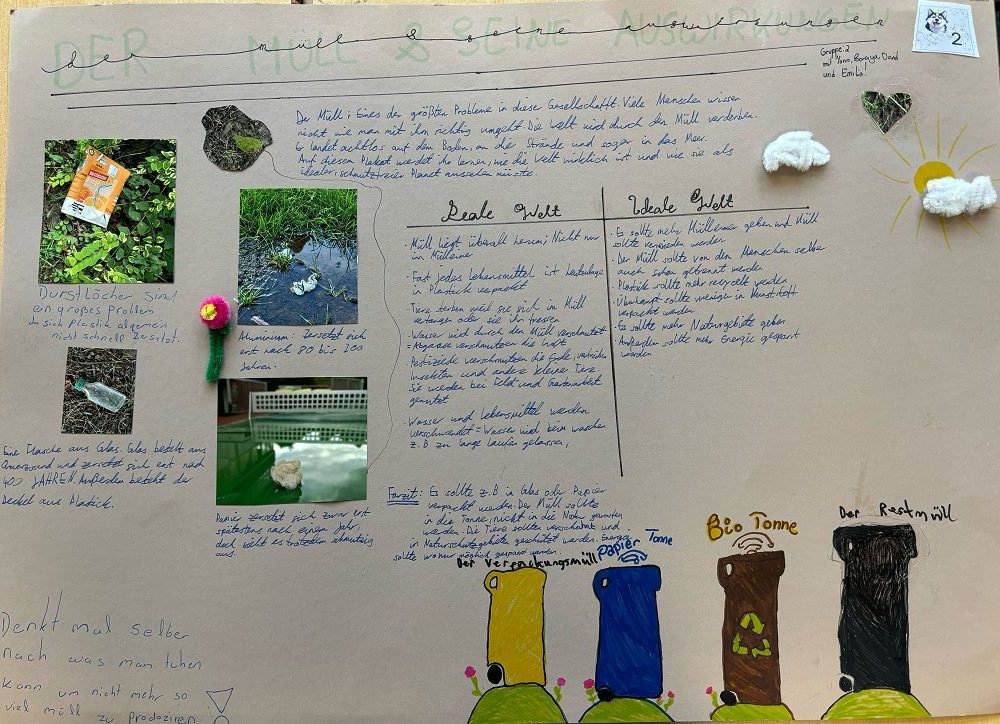 DER MÜLL & SEINE AUSWIRKUNGEN
der müll & seine auswirkungen
2
Gruppe: 2
und Emilia.
Der Müll: Eines der größten Probleme in dieser Gesellschafft. Viele Menschen wissen
nicht wie man mit ihm richtig umgeht. Die Welt wird durch den Müll verdorben.
Er landet achtlos auf dem Boden, an der Strände und sogar in das Meer.
Auf diesen Plakat werdet ihr lernen, wie die Welt wirklich ist und wie sie als
idealer, schmutzfreier Planet aussehen müsste.
Durstlöcher sind
ein großes Problem
da sich Plastik allgemein
nicht schnell zersetzt.
Aluminium: Zersetzt sich
erst nach 80 bis 200
Jahren.
Eine Flasche aus Glas. Glas besteht aus
Quarzsand und zersetzt sich erst nach
400 JAHREN. Außerdem besteht der
Deckel aus Plastick.
Papier zersetzt sich zwar erst
spätestens nach einem Jahr,
doch sieht es trotzdem
aus.
Reale Welt
Müll liegt überall herum; Nicht nur
im Mülleimer
· Fast jedes Lebensmittel ist heutzutage
in Plastick verpackt
· Tiere sterben weil sie sich in Müll
verfangen oder sie ihn fressen
· Wasser wird durch den Müll verschmutzt
= Abgase verschmutzen die Luft
Pestiziede verschmutzen die Erde,
Insekten und andere kleine Tiere.
Sie werden bei Feld und Gartenarbeit
genutzt
· Wasser und Lebensmittel werden
verschwendet = Wasser wird beim waschen
z.B zu lange laufen gelassen,
Ideale Welt
· Es sollte mehr Mülleimer geben und Müll
sollte vermieden werden
· Der Müll sollte von den Menschen selber
auch schon getrennt werden
Plastik sollte mehr recycelt werden
· Überhaupt sollte weniger in Kunststoff
verpackt werden
· Es sollte mehr Naturgebiete geben
· Außerdem sollte mehr Energie gespart
werden
Fazit: Es sollte z.B in Glas oder Papier
verpackt werden. Der Müll sollte
in die Tonne, nicht in die Natur geworfen
werden. Die Tiere sollten verschohnt und
in Naturschutzgebieten geschützt werden. Energie
sollte wo nur möglich gespart werden
Der Verpackungsmüll
Papier Tonne
Bio Tonne
Der Restmüll
Denkt mal selber
nach was man tuhen
kann um nicht mehr so
viel müll zu prodoziren